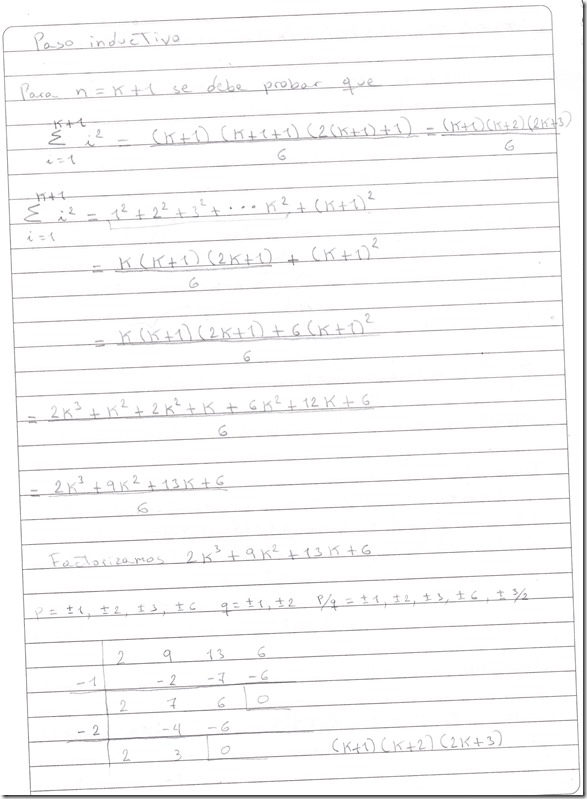 Paso inductivo
Para n = K+1 se debe probar que
K+1
Σ i² = (K+1) (K+1+1) (2(K+1)+1) / 6 = (K+1)(K+2)(2K+3) / 6
i=1
K+1
Σ i² = 1² + 2² + 3² + ··· K² + (K+1)²
i=1
= K(K+1)(2K+1) / 6 + (K+1)²
= K(K+1)(2K+1) + 6(K+1)² / 6
= 2K³ + K² + 2K² + K + 6K² + 12K + 6 / 6
= 2K³ + 9K² + 13K + 6 / 6
Factorizamos 2K³ + 9K² + 13K + 6
P = ±1, ±2, ±3, ±6 q = ±1, ±2 P/q = ±1, ±2, ±3, ±6, ±3/2
2 9 13 6
-1 -2 -7 -6
2 7 6 0
-2 -4 -6
2 3 0 (K+1)(K+2)(2K+3)